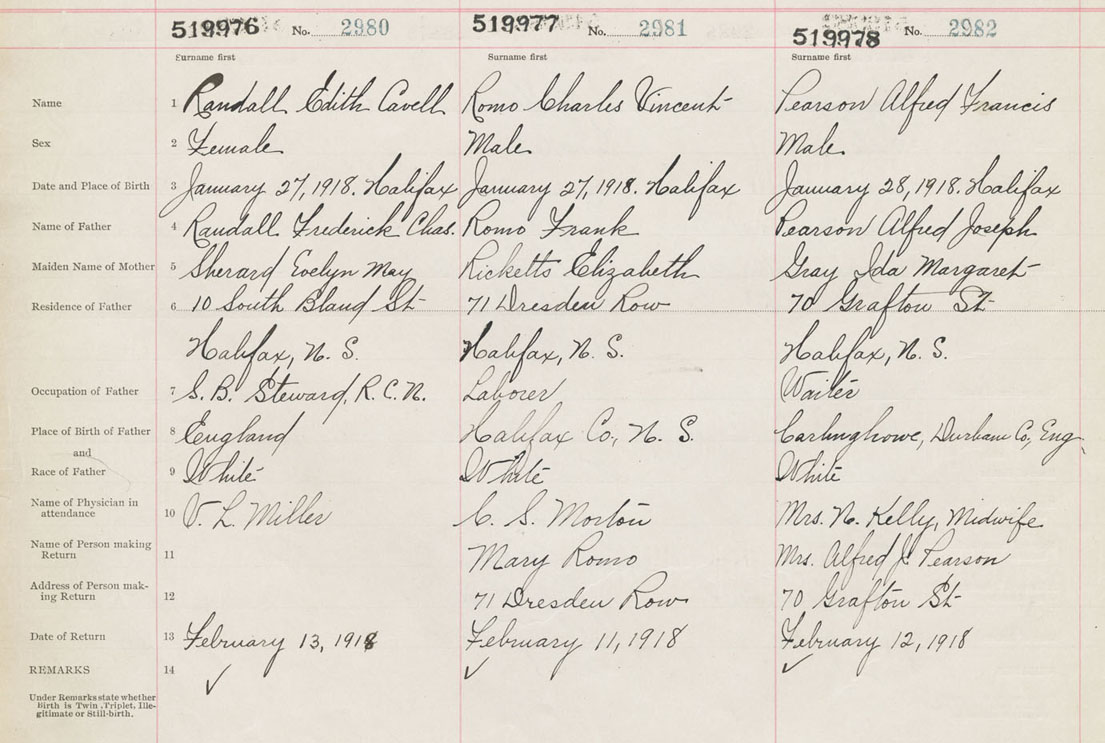 519976 No. 2980 519977 No. 2981 519978 No. 2982
Surname first Surname first Surname first
Name 1 Randall Edith Cavell Romo Charles Vincent Pearson Alfred Francis
Sex 2 Female Male Male
Date and Place of Birth 3 January 27, 1918. Halifax January 27, 1918. Halifax January 28, 1918. Halifax
Name of Father 4 Randall Frederick Chas. Romo Frank Pearson Alfred Joseph
Maiden Name of Mother 5 Sherard Evelyn May Ricketts Elizabeth Gray Ida Margaret
Residence of Father 6 10 South Bland St 71 Dresden Row 70 Grafton St
Halifax, N. S. Halifax, N. S. Halifax, N. S.
Occupation of Father 7 S. B. Steward, R. C. N. Laborer Waiter
Place of Birth of Father 8 England Halifax Co., N. S. Carlinghowe, Durham Co, Eng.
and
Race of Father 9 White White White
Name of Physician in
attendance 10 V. L. Miller C. S. Morton Mrs. N. Kelly, Midwife
Name of Person making
Return 11 Mary Romo Mrs. Alfred J. Pearson
Address of Person mak-
ing Return 12 71 Dresden Row 70 Grafton St
Date of Return 13 February 13, 1918 February 11, 1918 February 12, 1918
REMARKS 14 ✓ ✓ ✓
Under Remarks state whether
Birth is Twin, Triplet, Ille-
gitimate or Still-birth.